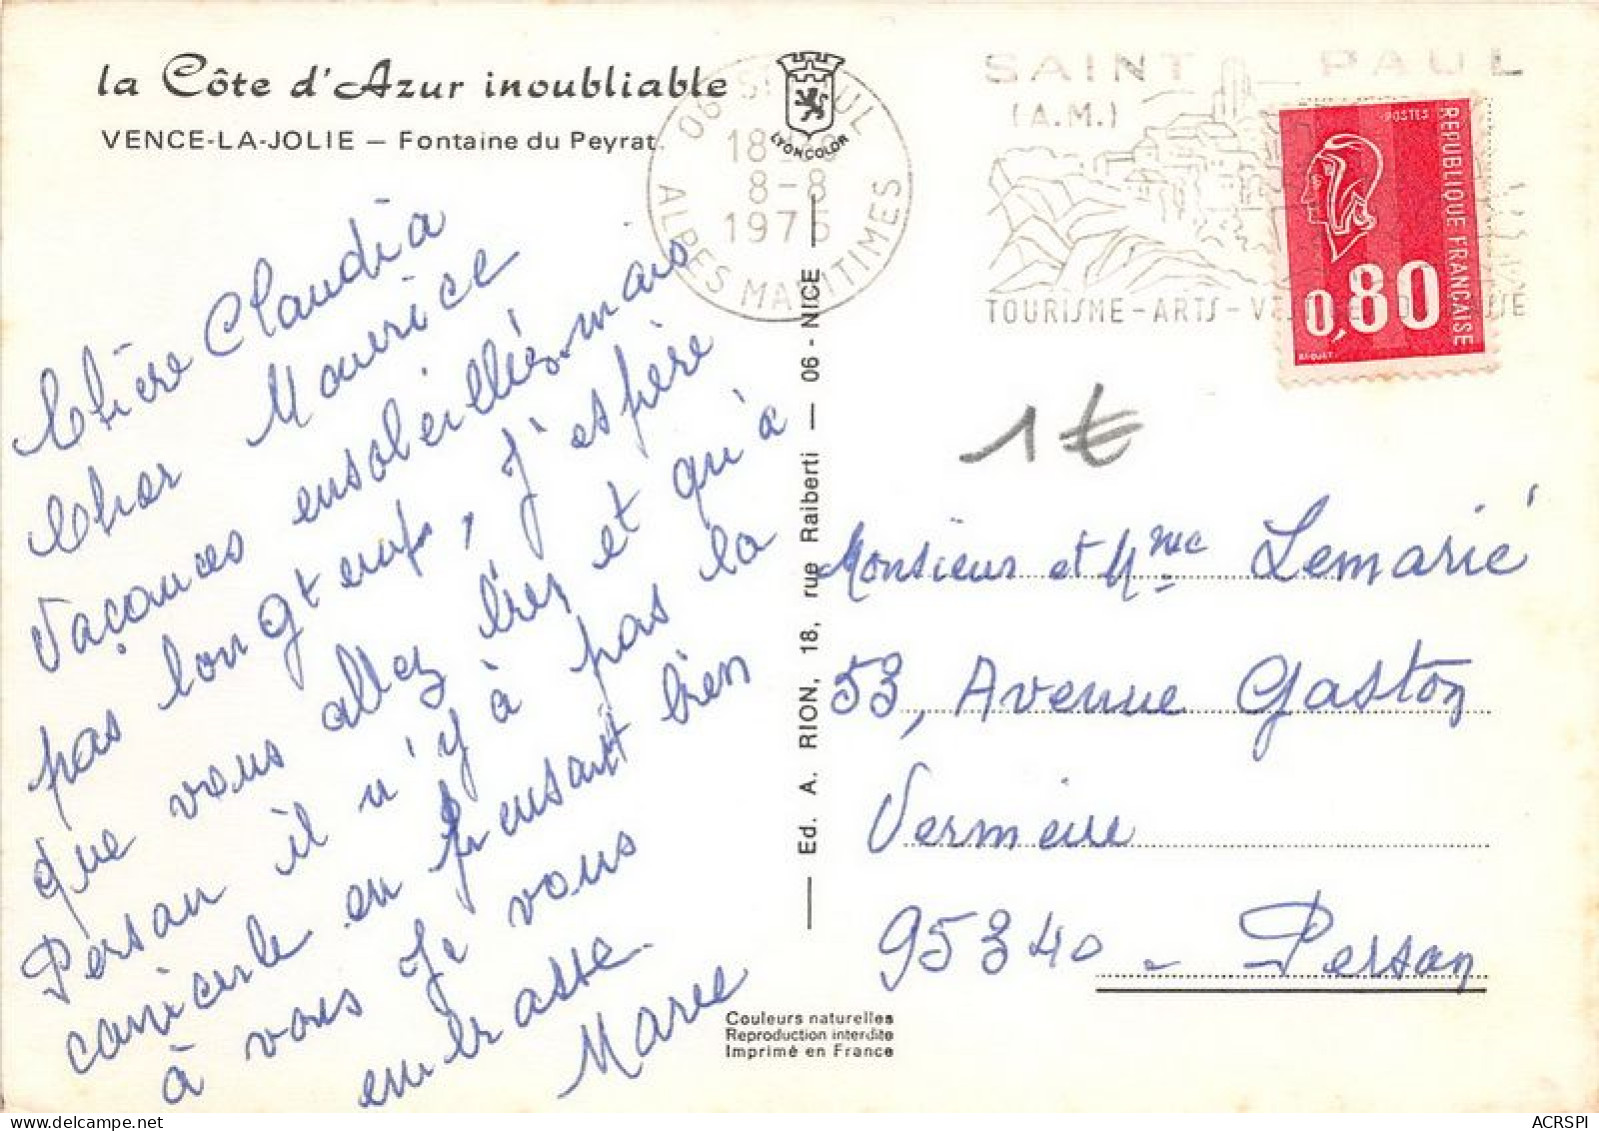 la Côte d'Azur inoubliable
VENCE-LA-JOLIE — Fontaine du Peyrat.
LYONCOLOR
06 ST PAUL
18
8-8
1975
ALPES MARITIMES
SAINT PAUL
(A.M.)
TOURISME-ARTS-
POSTES
REPUBLIQUE FRANÇAISE
0,80
BEQUET
1€
Chère Claudia
Cher Maurice
Vacances ensoleillées mais
pas longtemps, j'espère
que vous allez bien et qu'à
Persan il n'y à pas la
canicule en pensant bien
à vous Je vous
embrasse.
Ed. A. RION, 18, rue Raiberti — 06 - NICE
Monsieur et Mme Lemarié
53, Avenue Gaston
Vermeire
95340 - Persan
Couleurs naturelles
Reproduction interdite
Imprimé en France
ACRSPI